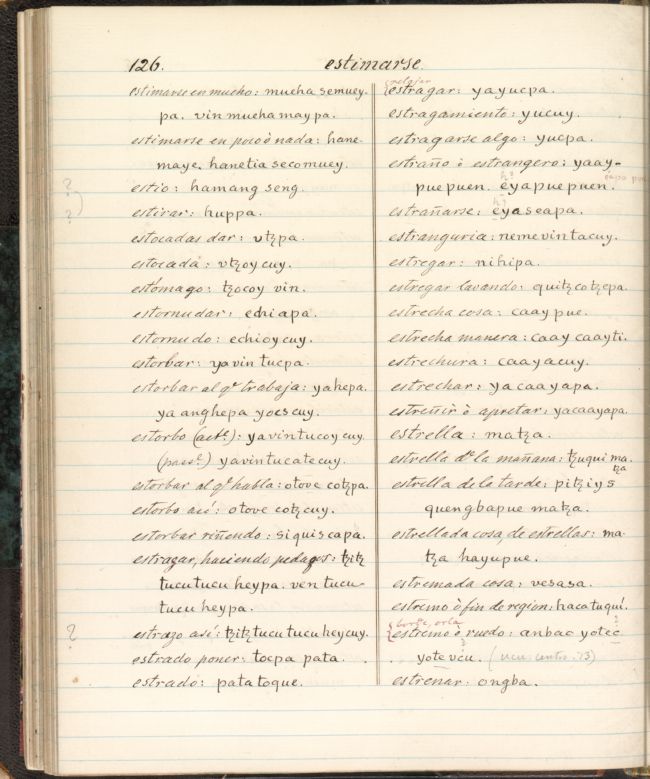 126.
estimarse.
estimarse en mucho: mucha semuey.
pa. vin mucha may pa.
estimarse en poco ò nada: hane-
maye, hanetia secomuey.
?
estio: hamang seng.
?
estirar: huppa.
estocadas dar: vtꜩpa.
estocada: vtꜩoy cuy.
estomago: tꜩocoy vin.
estornudar: echiapa.
estornudo: echioy cuy.
estorbar: ya vin tucpa.
estorbar al qe trabaja: yahepa.
ya anghepa yoes cuy.
estorbo (acte.): yavintucoy cuy.
(pase.) yavintucatecuy.
estorbar al qe habla: otove cotꜩpa.
estorbo asi: otove cotꜩcuy.
estorbar riñendo: siquiscapa.
estrazar, haciendo pedaços: tꜩitꜩ
tucutucu heypa. ven tucu-
tucu heypa.
?
estrazo asi: tꜩitꜩ tucu tucu heycuy.
estrado poner: tocpa pata.
estrado: patatoque.
relajar
estragar: yayucpa.
estragamiento: yucuy.
estragarse algo: yucpa.
estraño ò estrangero: yaay-
h?
puepuen. eyapuepuen.
h?
estrañarse: eyaseapa.
estranguria: nemevintacuy.
estregar: nihipa.
estregar lavando: quitꜩcotꜩepa.
estrecha cosa: caay pue.
estrecha manera: caay caayti.
estrechura: caayacuy.
estrechar: yacaayapa.
estreñir ò apretar: yacaayapa.
estrella: matꜩa.
estrella de la mañana: tꜩuqui ma-
tꜩa
estrella de la tarde: pitꜩiys
quengbapue matꜩa.
estrellada cosa de estrellas: ma-
tꜩa hayupue.
estremada cosa: vesasa.
estremo ò fin de region: hacatuquí.
borde, orla
estremo ò ruedo: anbac yotec
?
yote vcu. (ucu: centro: 73)
estrenar: ongba.